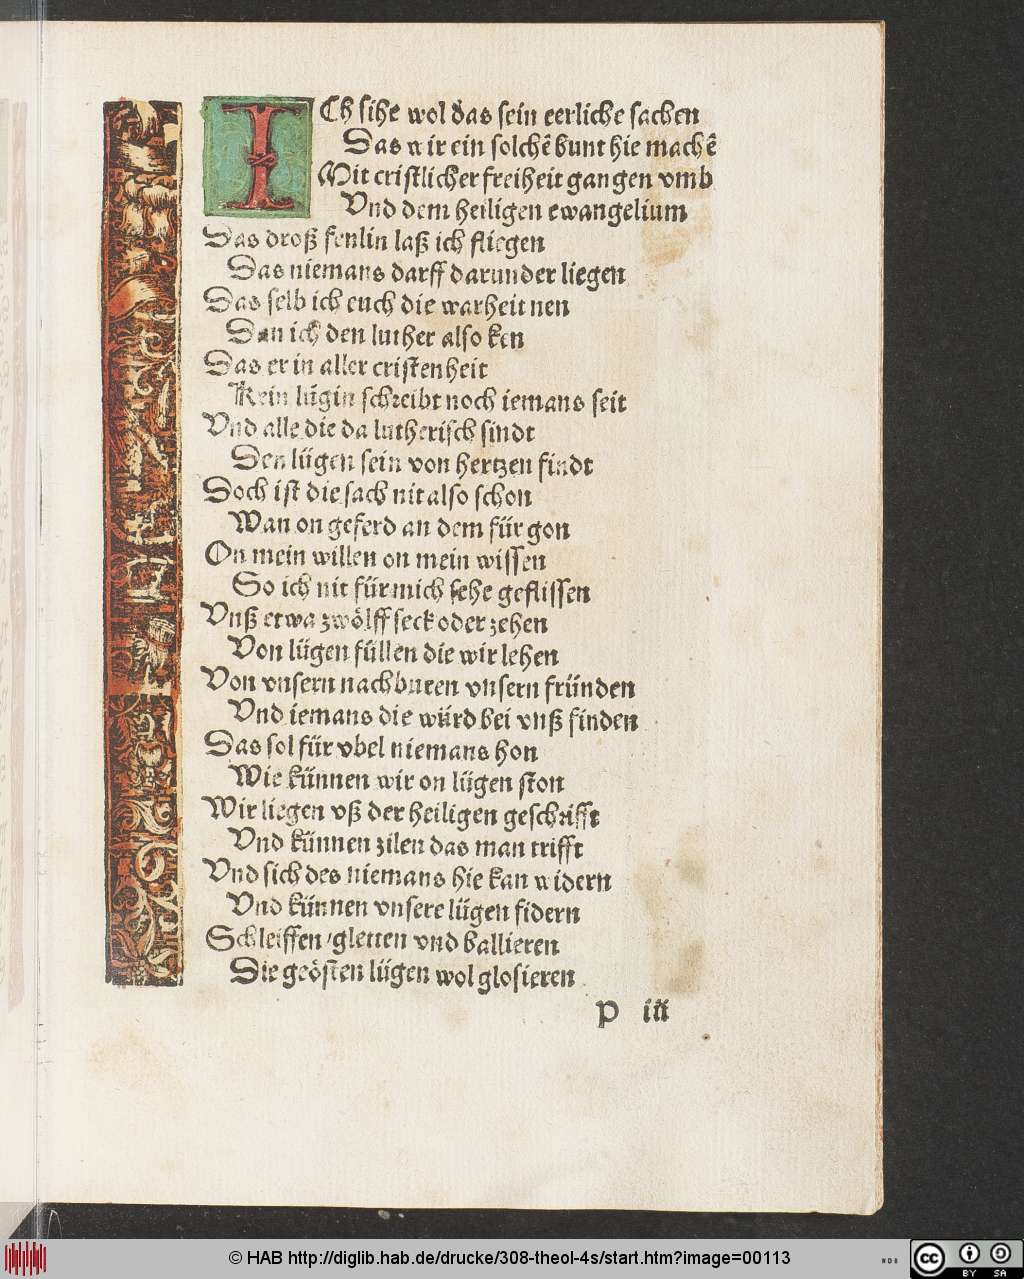 ICh sihe wol das sein eerliche sachen
Das wir ein solchē bunt hie machē
Mit cristlicher freiheit gangen vmb
Vnd dem heiligen ewangelium
Das droß fenlin laß ich fliegen
Das niemans darff darunder liegen
Das selb ich euch die warheit nen
Dan ich den luther also ken
Das er in aller cristenheit
Kein lügin schreibt noch iemans seit
Vnd alle die da lutherisch sindt
Den lügen sein von hertzen findt
Doch ist die sach nit also schon
Wan on geferd an dem für gon
On mein willen on mein wissen
So ich nit für mich sehe geflissen
Vnß etwa zwölff seck oder zehen
Von lügen füllen die wir lehen
Von vnsern nachburen vnsern fründen
Vnd iemans die würd bei vnß finden
Das sol für vbel niemans hon
Wie künnen wir on lügen ston
Wir liegen vß der heiligen geschrifft
Vnd künnen zilen das man trifft
Vnd sich des niemans hie kan widern
Vnd künnen vnsere lügen fidern
Schleiffen/gletten vnd ballieren
Die geösten lügen wol glosieren
P iii
© HAB http://diglib.hab.de/drucke/308-theol-4s/start.htm?image=00113
WDB
cc BY SA